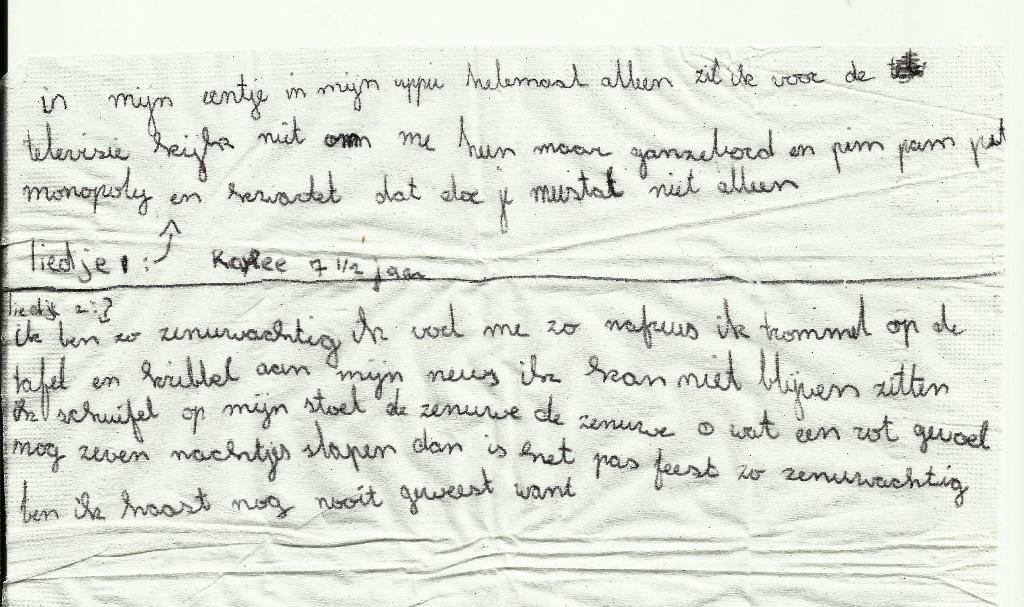 in mijn eentje in mijn uppie helemaal alleen zit ik voor de
televisie kijk niet om me heen maar ganzebord en pim pam pet
monopoly en kwartet dat doe je meestal niet alleen
liedje 1: 7 1/2 jaar
liedje 2:
ik ben zo zenuwachtig ik voel me zo nerveus ik trommel op de
tafel en kribbel aan mijn neus ik kan niet blijven zitten
ik schuifel op mijn stoel de zenuwe de zenuwe o wat een rot gevoel
nog zeven nachtjes slapen dan is het pas feest zo zenuwachtig
ben ik haast nog nooit geweest want